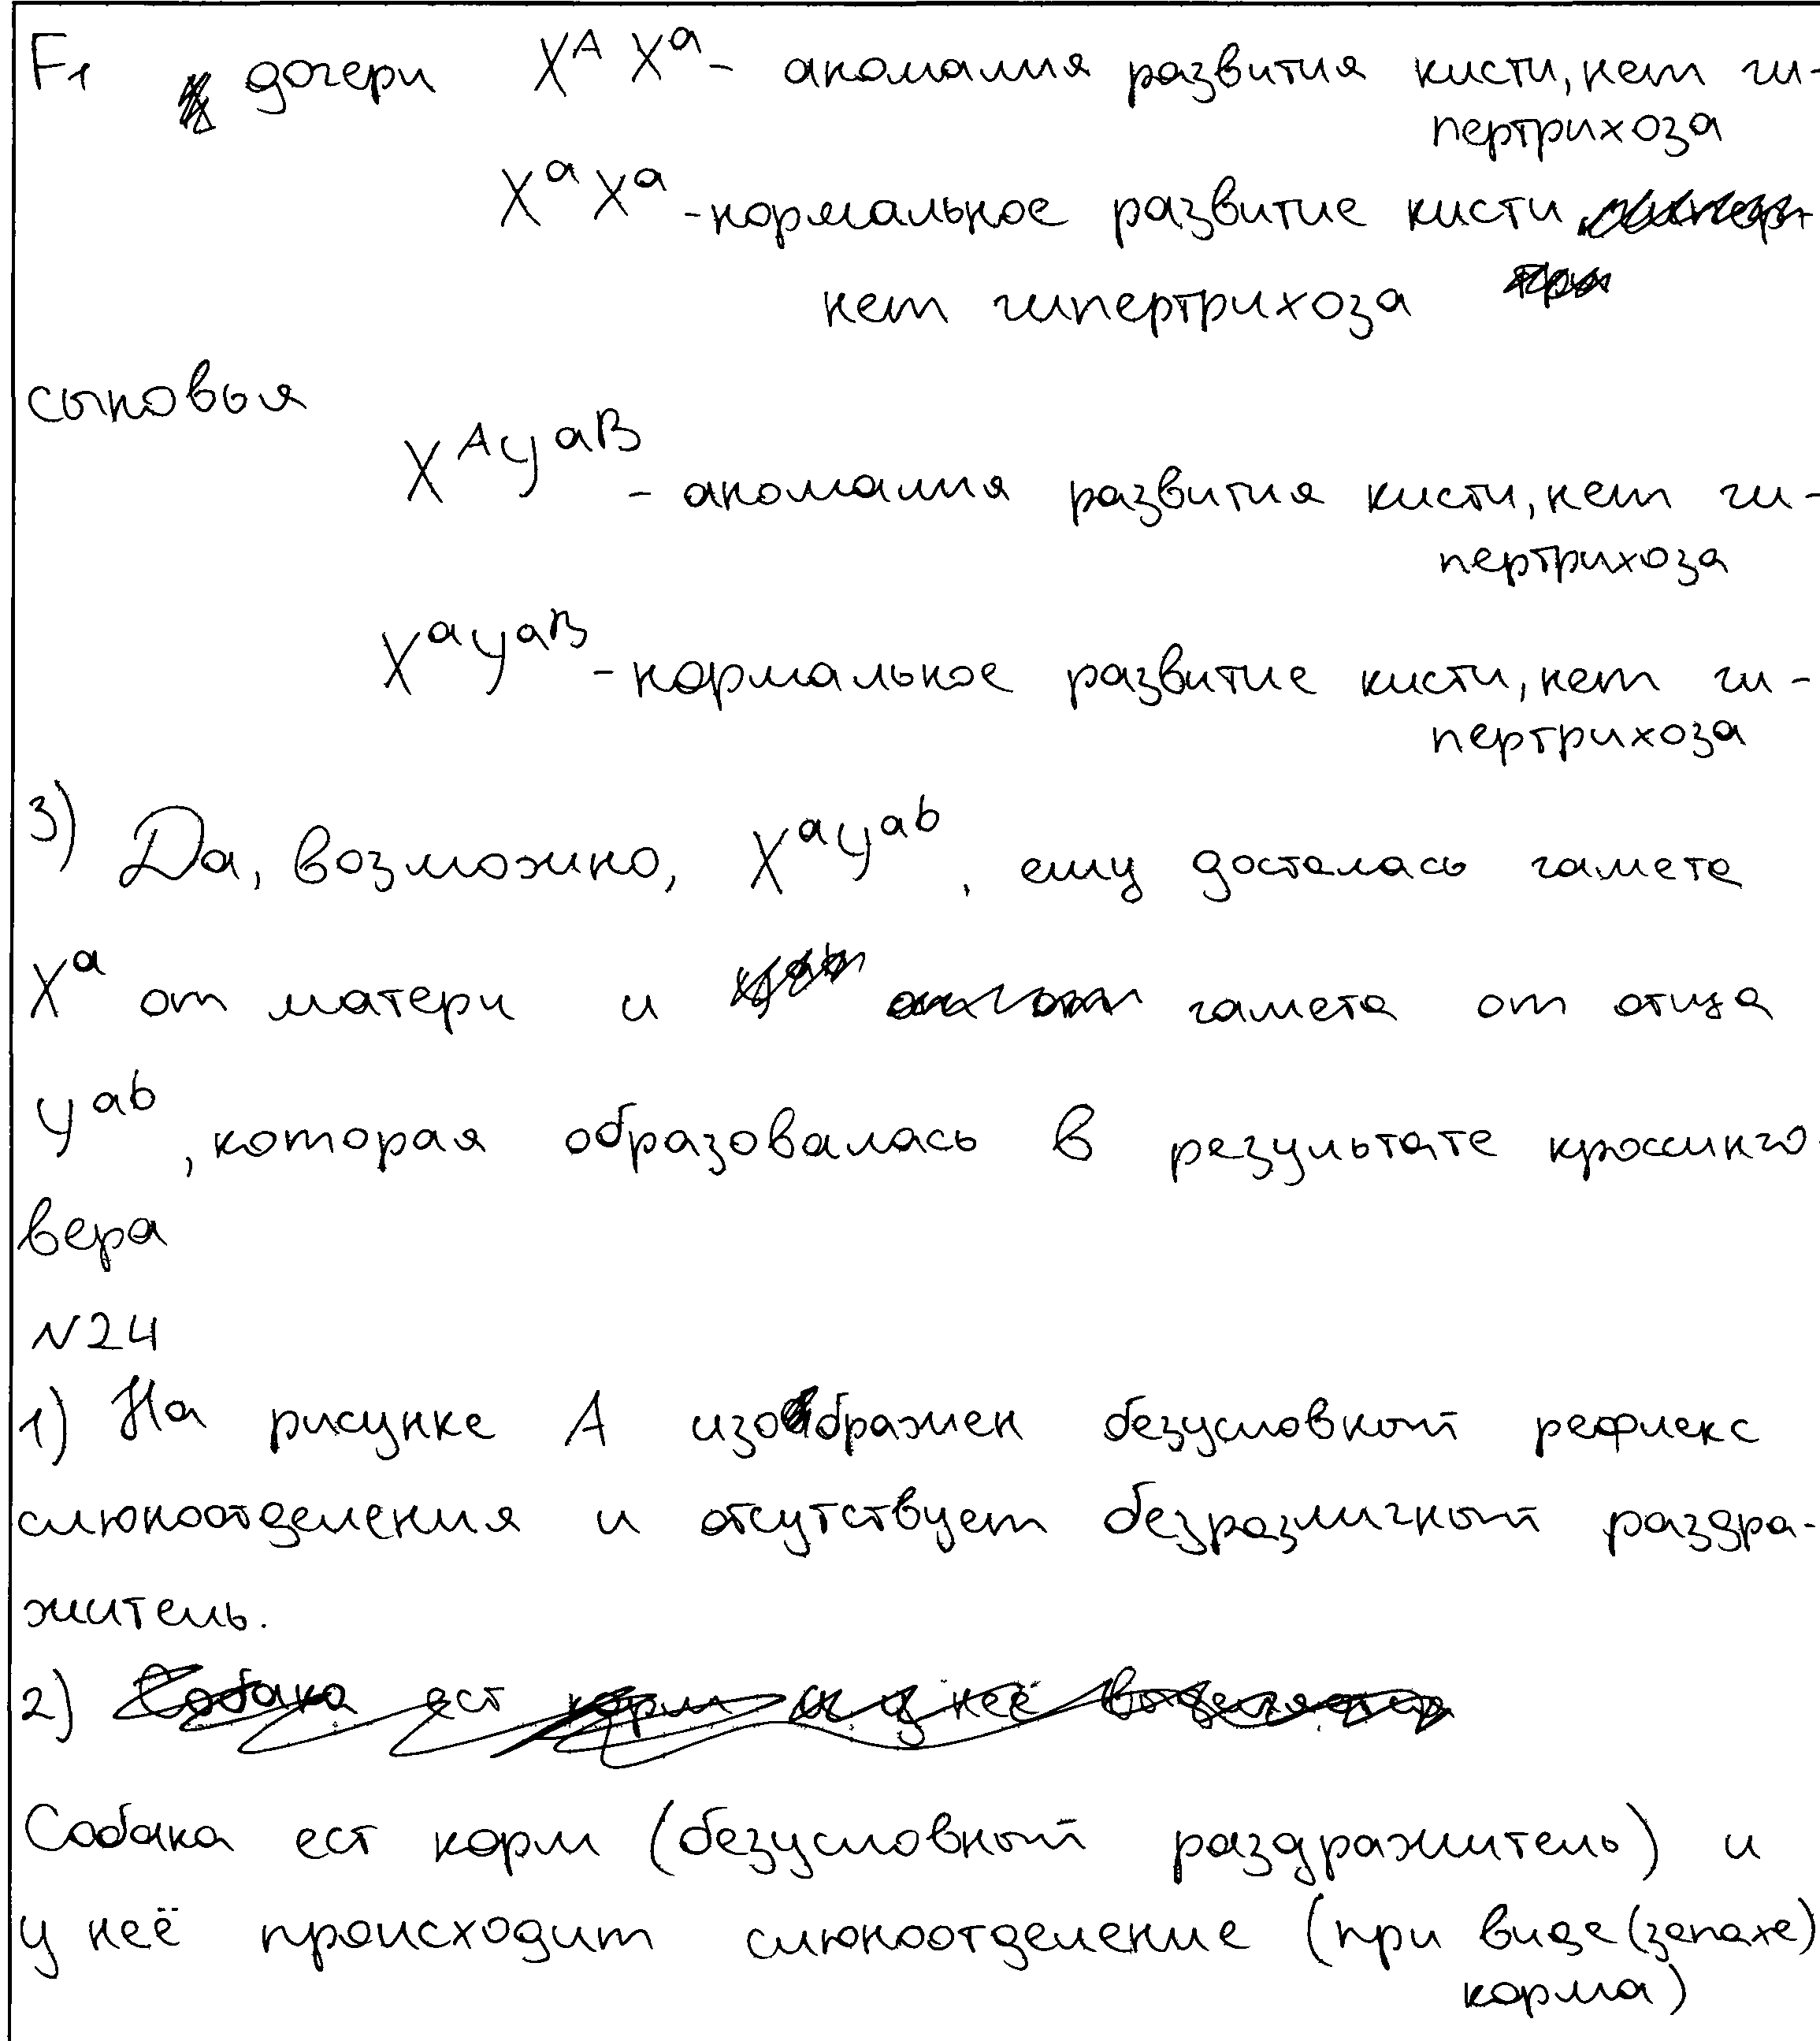 F₁ дочери Xᴬ Xᵃ - аномалия развития кисти, нет ги-
пертрихоза
XᵃXᵃ - нормальное развитие кисти
нет гипертрихоза
сыновья
XᴬYᵃᴮ - аномалия развития кисти, нет ги-
пертрихоза
XᵃYᵃᴮ - нормальное развитие кисти, нет ги-
пертрихоза
3) Да, возможно, XᵃYᵃᵇ, ему досталась гамета
Xᵃ от матери и гамета от отца
Yᵃᵇ, которая образовалась в результате кроссинго-
вера
N24
1) На рисунке А изображен безусловный рефлекс
слюноотделения и отсутствует безразличный раздра-
житель.
2) Собака ест корм и у неё
Собака ест корм (безусловный раздражитель) и
у неё происходит слюноотделение (при виде (запахе)
корма)